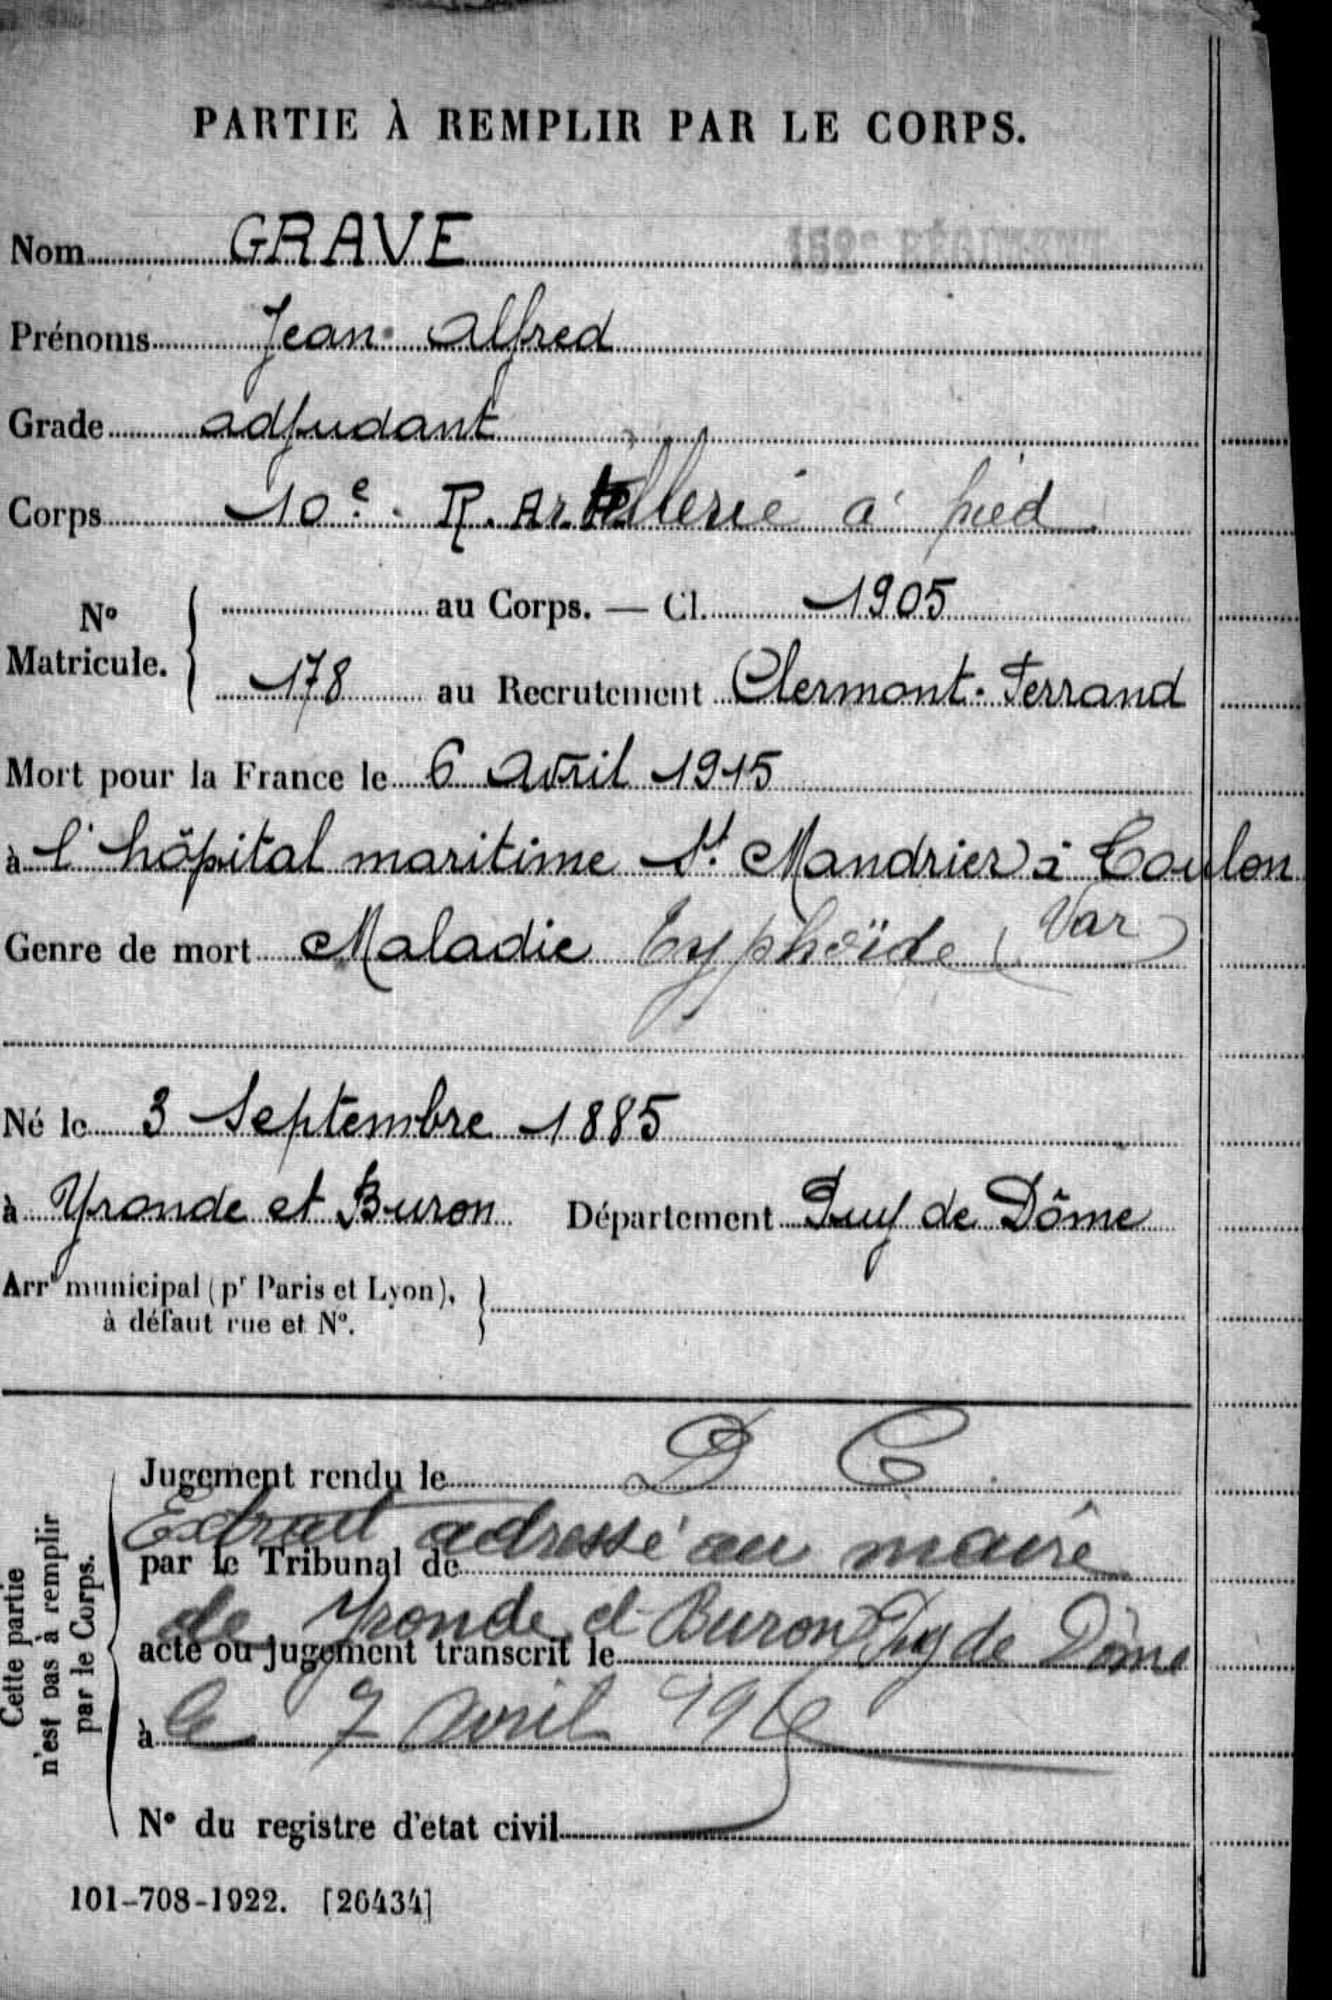 PARTIE À REMPLIR PAR LE CORPS.
152e RÉGIMENT
Nom GRAVE
Prénoms Jean Alfred
Grade adjudant
Corps 10e R. Artillerie à pied
No Matricule. au Corps. — Cl. 1905
178 au Recrutement Clermont-Ferrand
Mort pour la France le 6 Avril 1915
à l'hôpital maritime St Mandrier à Toulon
(Var)
Genre de mort Maladie Typhoïde
Né le 3 Septembre 1885
à Yronde et Buron Département Puy de Dôme
Arrt municipal (pr Paris et Lyon),
à défaut rue et No.
Cette partie
n'est pas à remplir
par le Corps.
Jugement rendu le D C
Extrait adressé au maire
par le Tribunal de
de Yronde et Buron Puy de Dôme
acte ou jugement transcrit le
à le 7 avril
No du registre d'état civil
101-708-1922. [26434]